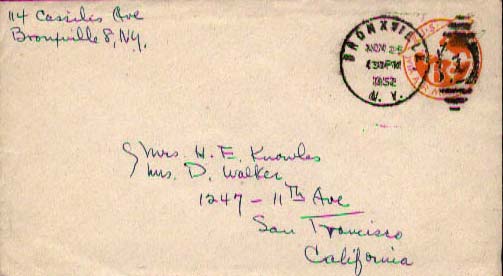 114 Cassilis Ave
Bronxville 8, N.Y.
BRONXVILLE
NOV 26
430 PM
1952
N. Y.
U.S.
Mrs. H. E. Knowles
Mrs. D. Walker
1247 - 11TH Ave
San Francisco
California